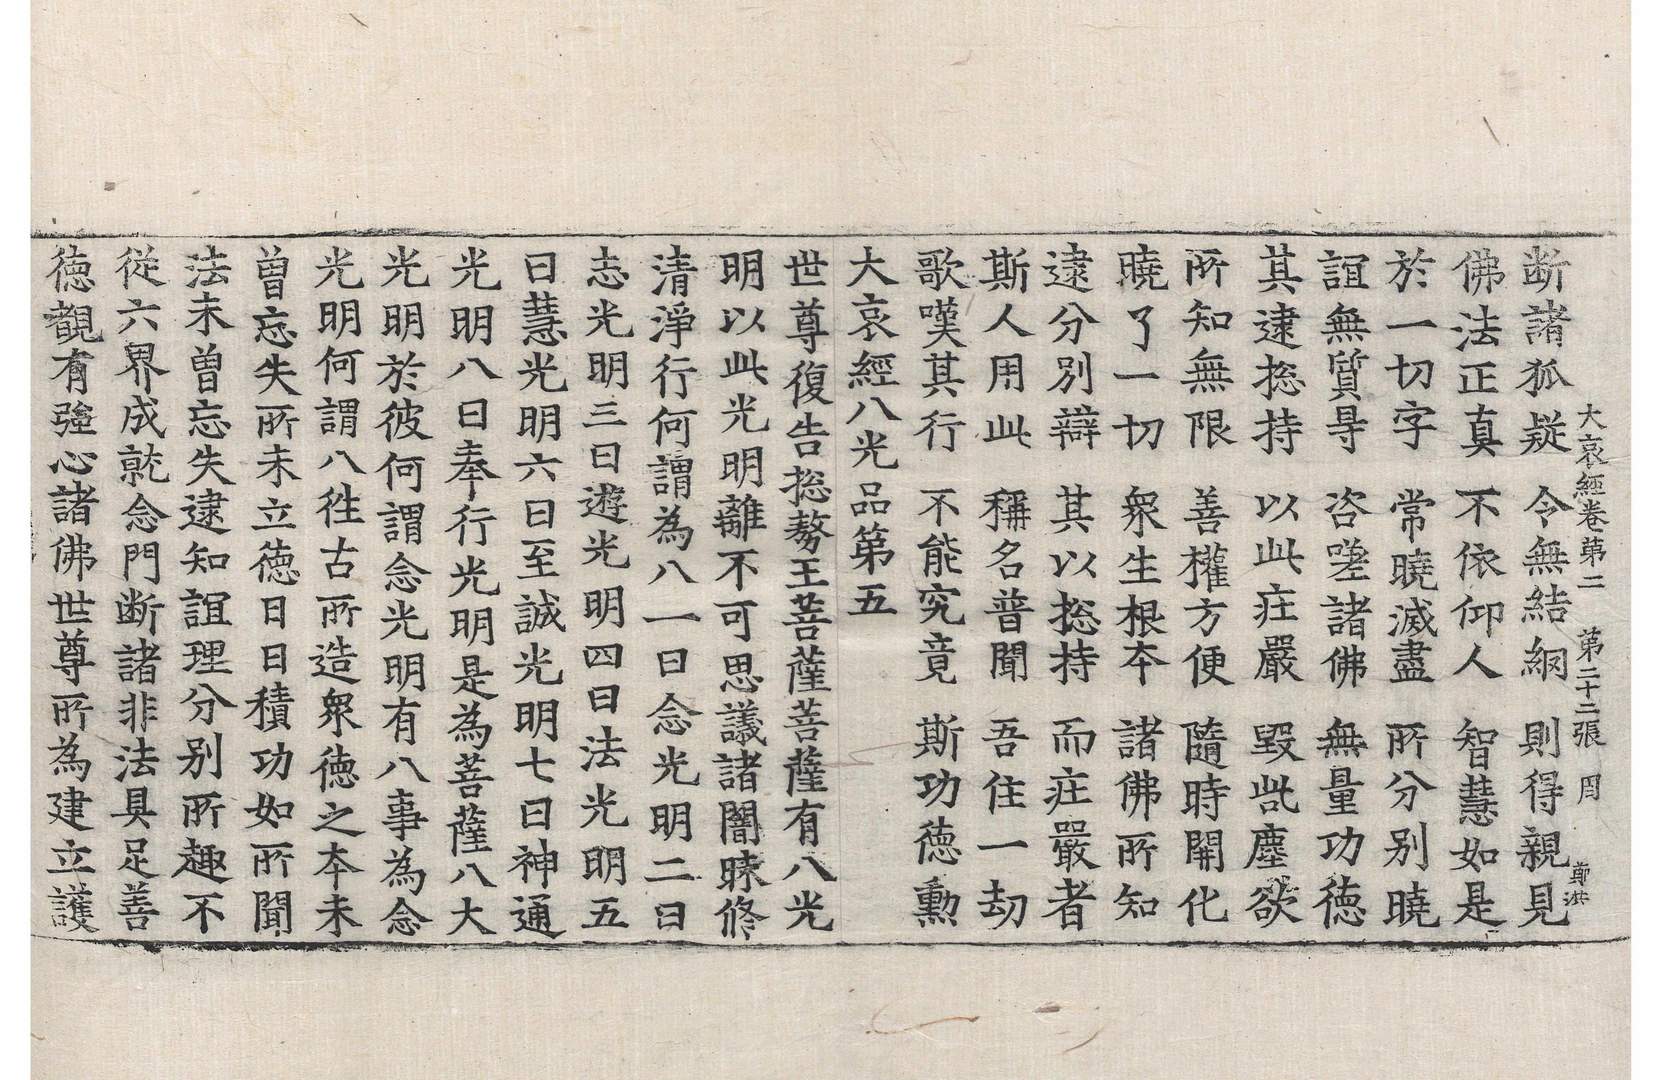 大哀經卷第二 第二十二張 周
鄭洪
断諸狐疑 令無結網 則得親見
佛法正真 不依仰人 智慧如是
於一切字 常曉滅盡 所分别曉
誼無質㝵 咨嗟諸佛 無量功德
其逮揔持 以此庄嚴 毀呰塵欲
所知無限 善權方便 隨時開化
曉了一切 衆生根夲 諸佛所知
逮分别辯 其以揔持 而庄嚴者
斯人用此 稱名普聞 吾住一劫
歌嘆其行 不能究竟 斯功德勳
大哀經八光品第五
世尊復告揔勇王菩薩菩薩有八光
明以此光明離不可思議諸闇昧修
清淨行何謂為八一曰念光明二曰
志光明三曰遊光明四曰法光明五
曰慧光明六曰至誠光明七曰神通
光明八曰奉行光明是為菩薩八大
光明於彼何謂念光明有八事為念
光明何謂八徃古所造衆德之夲未
曾忘失所未立德日日積功如所聞
法未曾忘失逮知誼理分别所趣不
從六界成就念門断諸非法具足善
德覩有強心諸佛世尊所為建立護